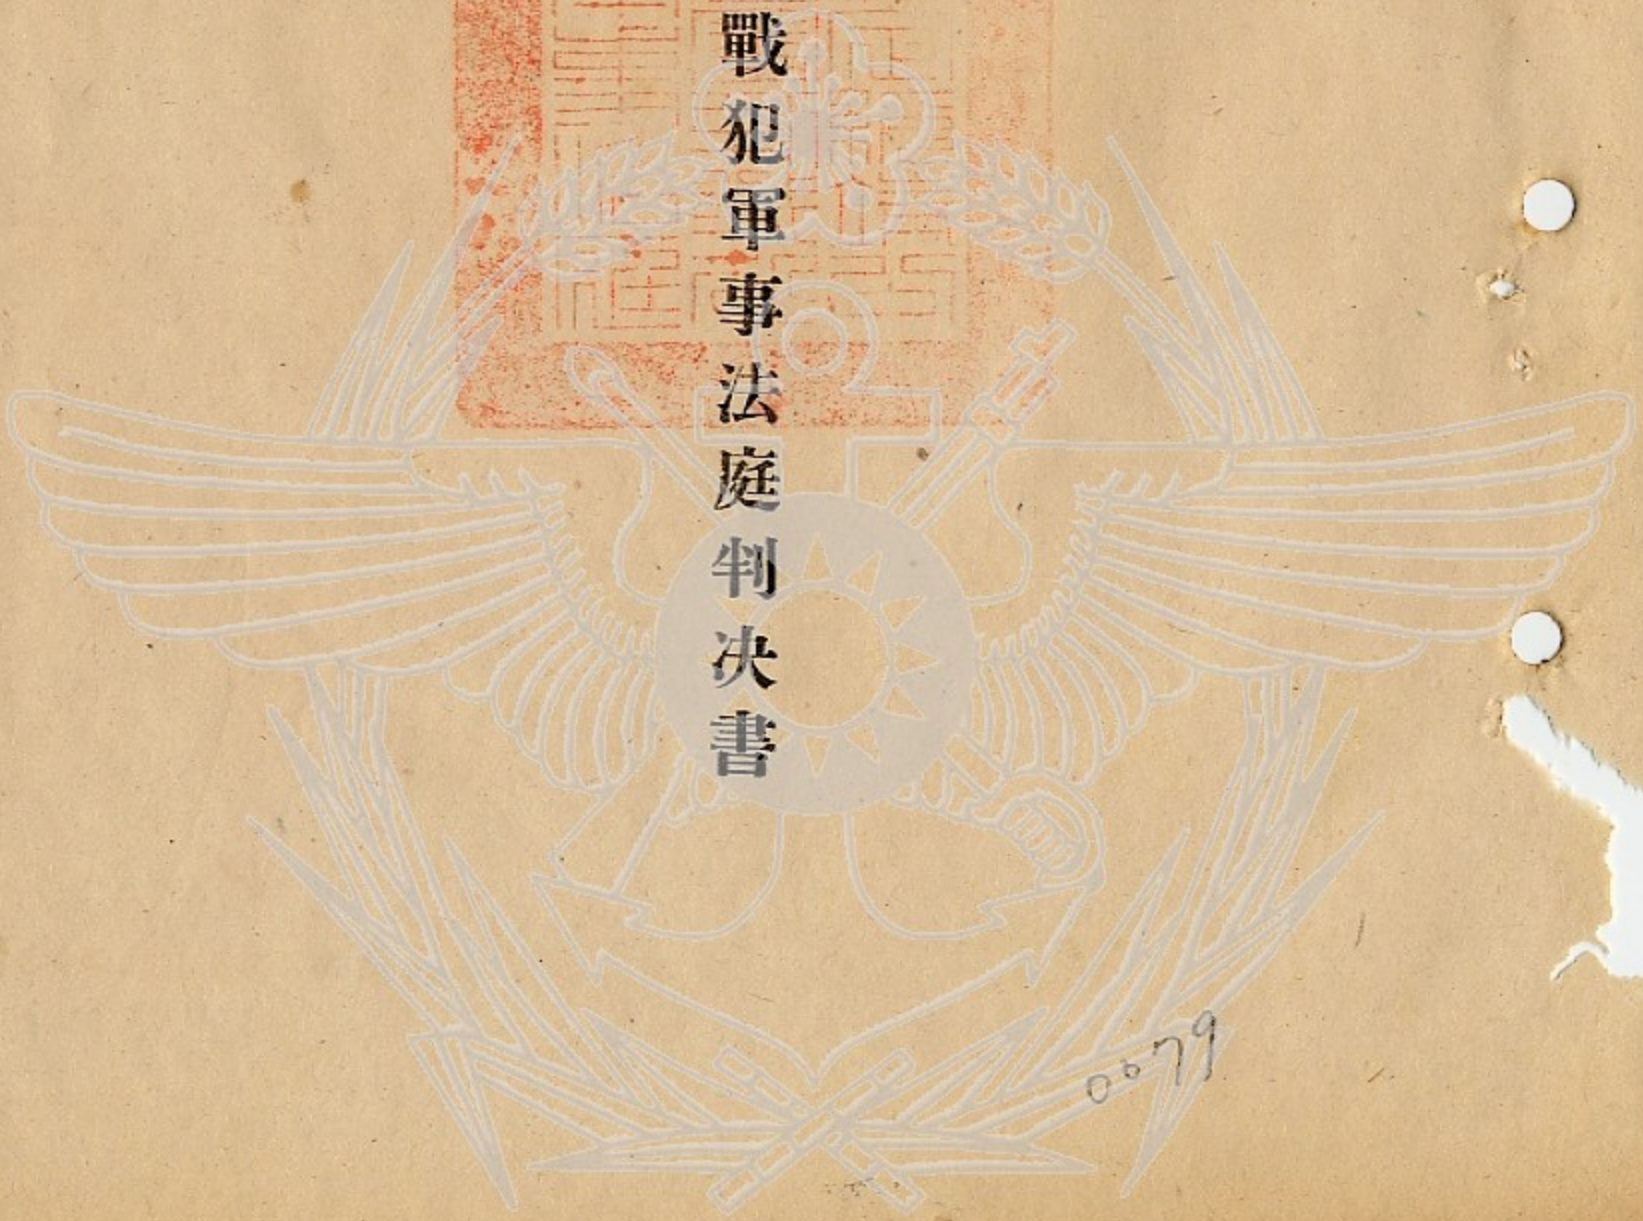 戰犯軍事法庭判決書
0079